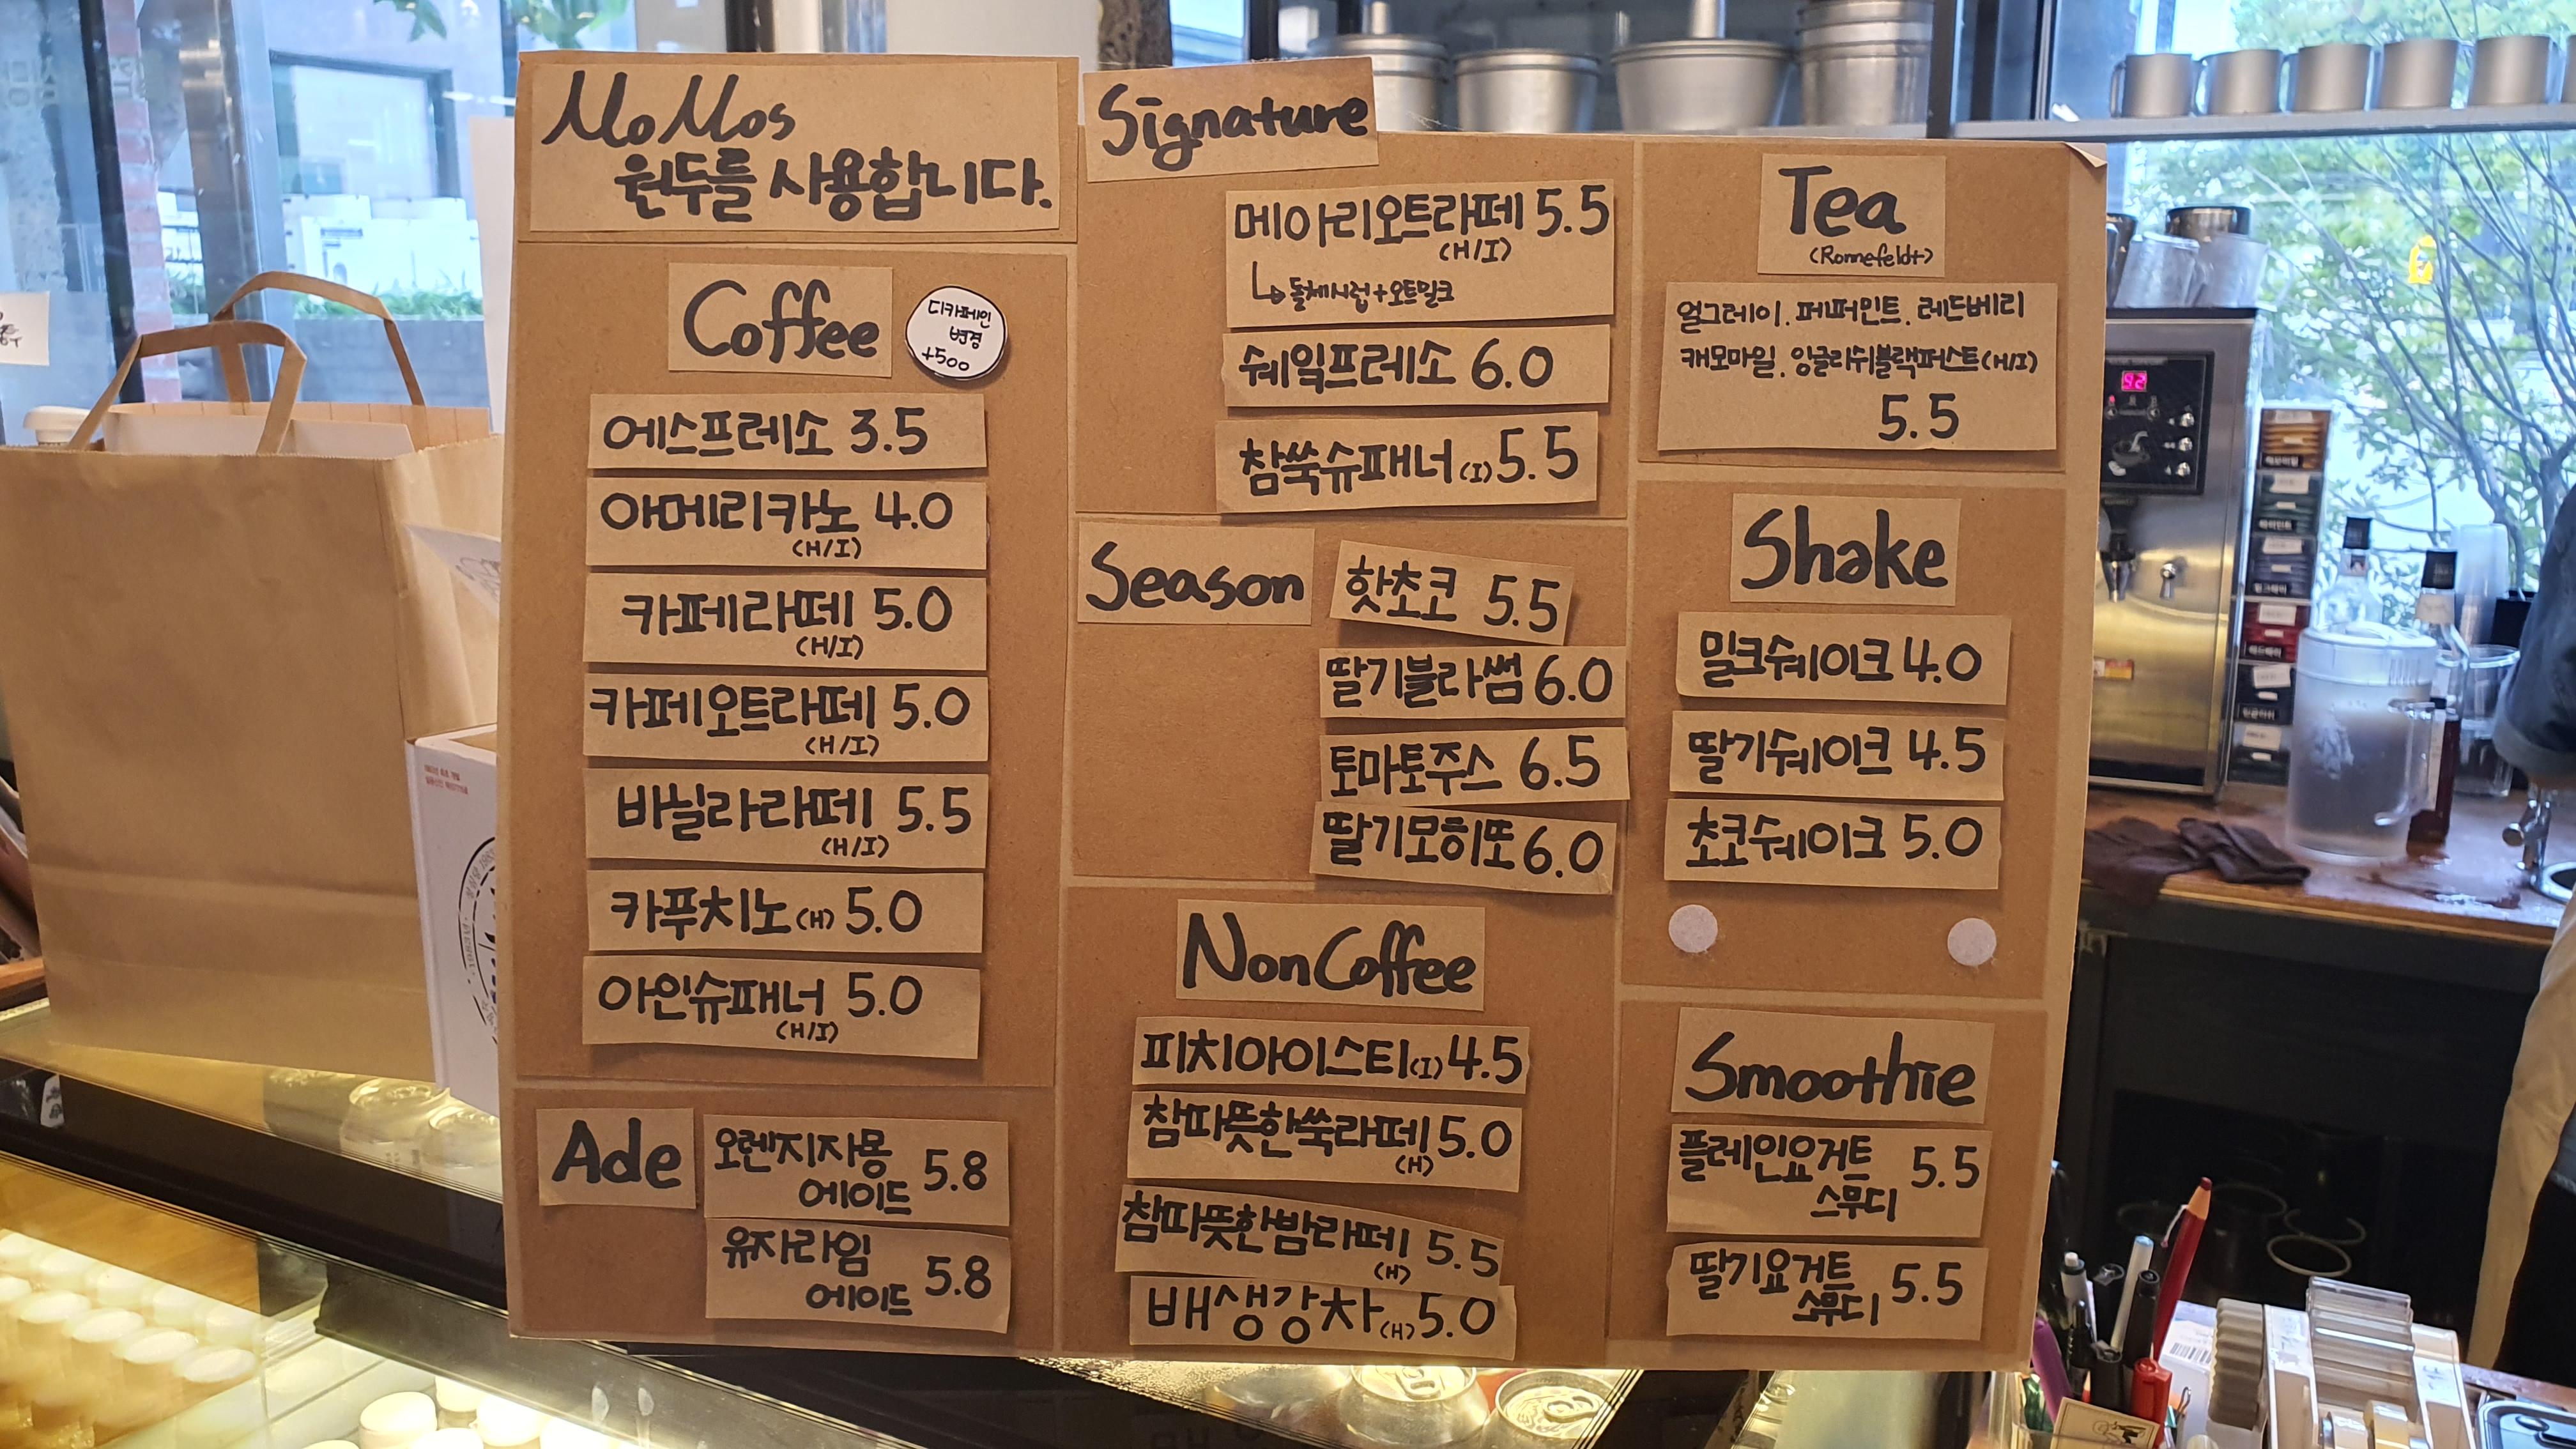 MoMos
원두를 사용합니다.
Coffee
디카페인
변경
+500
에스프레소 3.5
아메리카노 4.0
(H/I)
카페라떼 5.0
(H/I)
카페오트라떼 5.0
(H/I)
바닐라라떼 5.5
(H/I)
카푸치노 (H) 5.0
아인슈패너 5.0
(H/I)
Ade
오렌지자몽
에이드 5.8
유자라임
에이드 5.8
Signature
메아리오트라떼 5.5
(H/I)
돌체시럽+오트밀크
쉐잌프레소 6.0
참쑥슈패너 (I) 5.5
Season
핫초코 5.5
딸기블라썸 6.0
토마토주스 6.5
딸기모히또 6.0
NonCoffee
피치아이스티 (I) 4.5
참따뜻한쑥라떼 5.0
(H)
참따뜻한밤라떼 5.5
(H)
배생강차 (H) 5.0
Tea
(Ronnefeldt)
얼그레이. 퍼퍼민트. 레드베리
캐모마일. 잉글리쉬블랙퍼스트 (H/I)
5.5
Shake
밀크쉐이크 4.0
딸기쉐이크 4.5
초코쉐이크 5.0
Smoothie
플레인요거트 5.5
스무디
딸기요거트 5.5
스무디
92